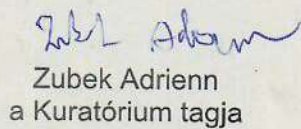 Zubek Adrienn
Zubek Adrienn
a Kuratórium tagja